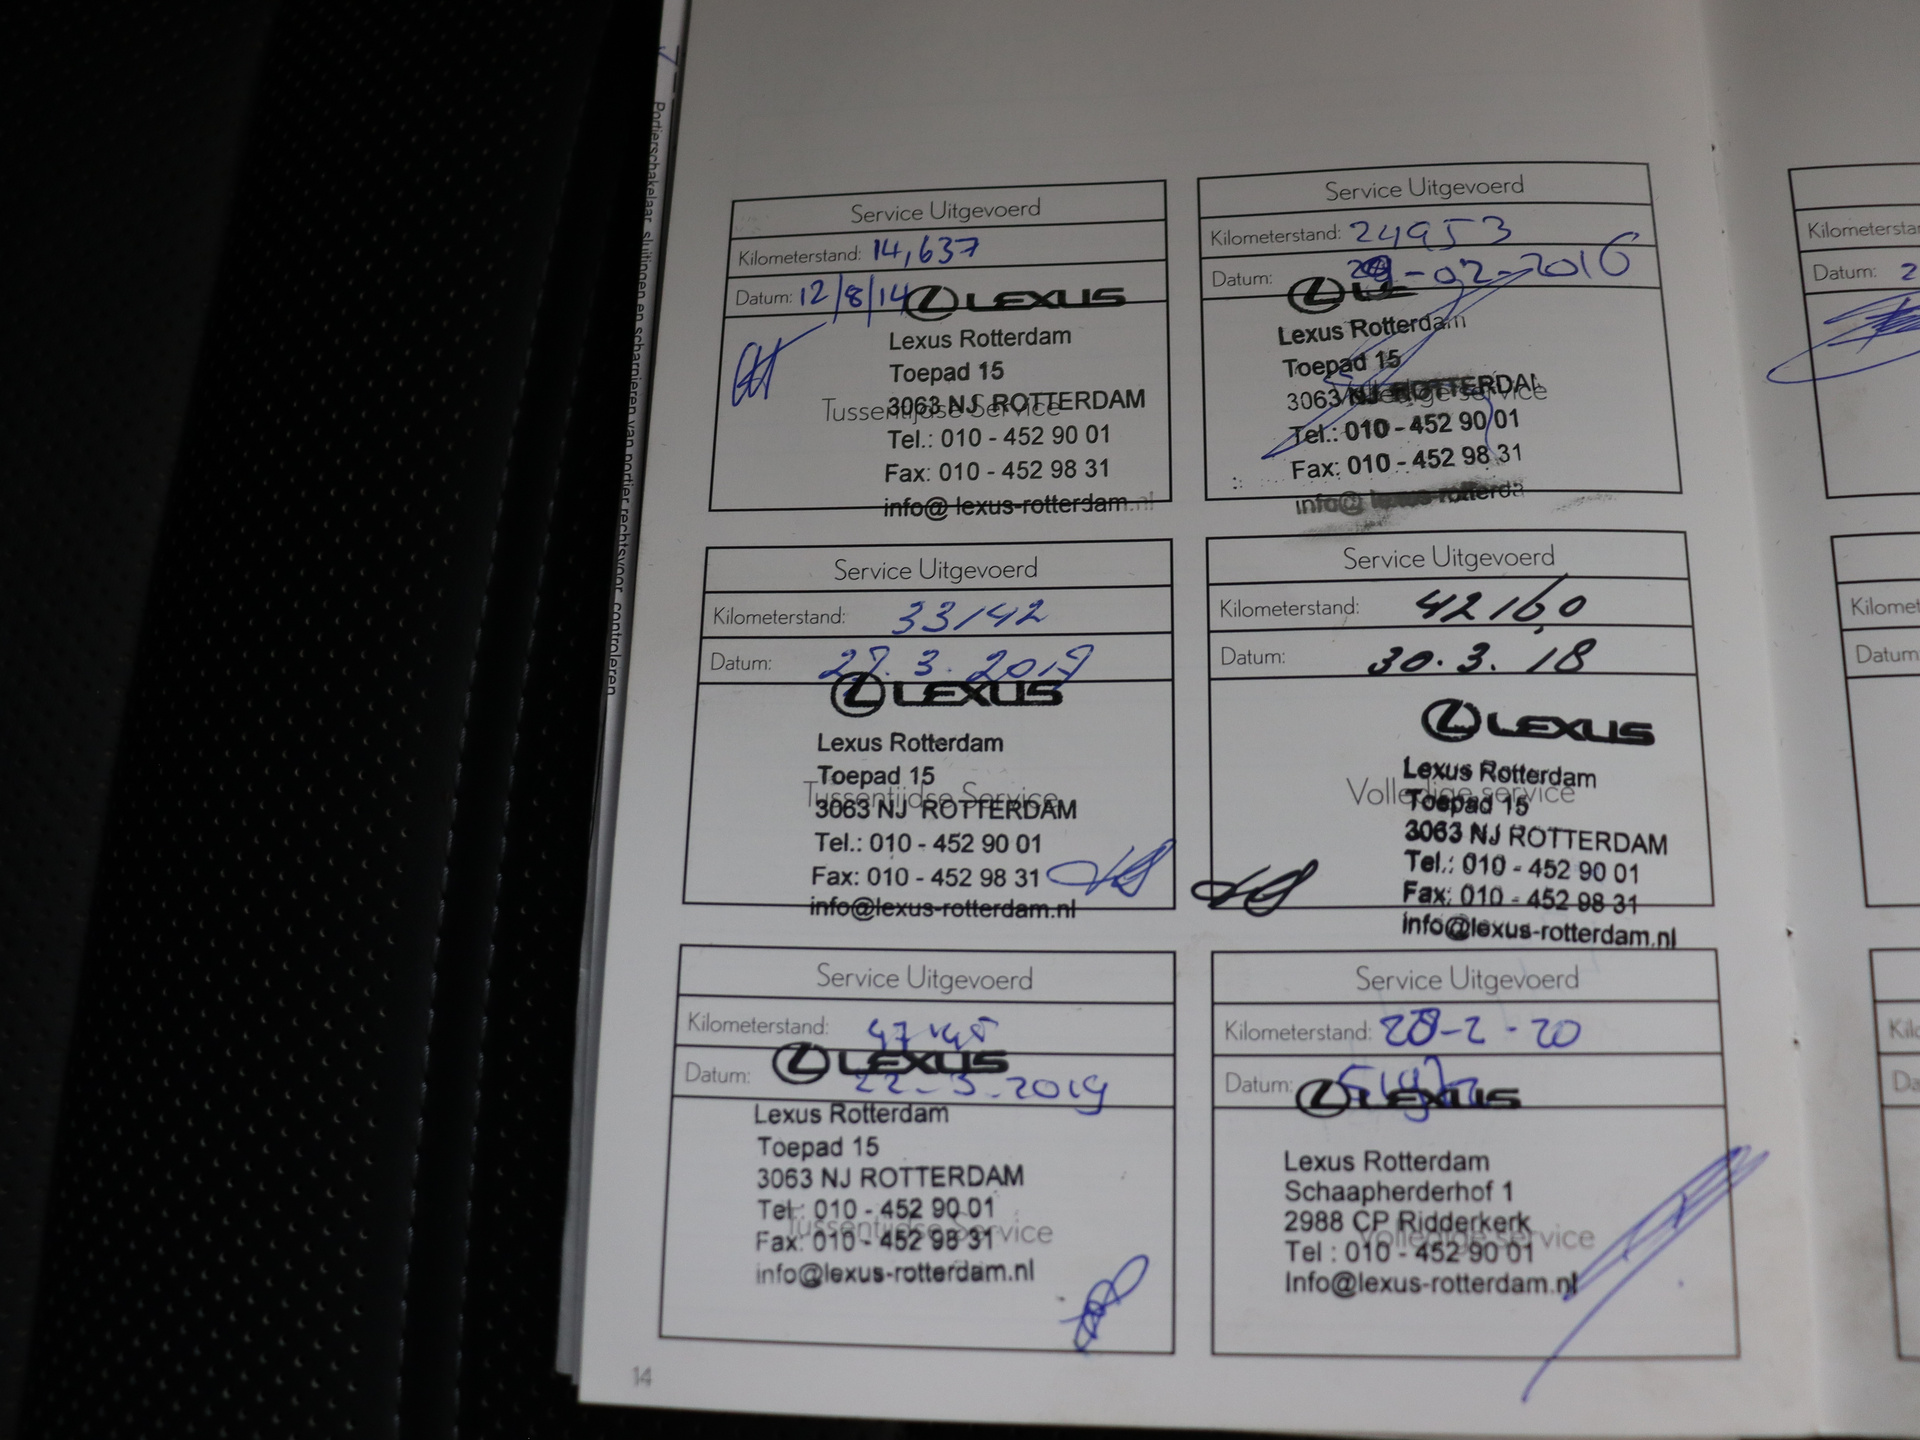 Portierschakelaar, sluitingen en scharnieren van portier rechtsvoor controleren
Service Uitgevoerd
Kilometerstand: 14,637
Datum: 12/8/14
LEXUS
Lexus Rotterdam
Toepad 15
3063 NJ ROTTERDAM
Tussentijdse Service
Tel.: 010 - 452 90 01
Fax: 010 - 452 98 31
info@lexus-rotterdam.nl
Service Uitgevoerd
Kilometerstand: 24953
Datum: -02-2016
Lexus Rotterdam
Toepad 15
3063 NJ ROTTERDAM
Volledige service
Tel.: 010 - 452 90 01
Fax: 010 - 452 98 31
info@lexus-rotterda
Service Uitgevoerd
Kilometerstand: 33142
Datum: 27.3.
LEXUS
Lexus Rotterdam
Toepad 15
Tussentijdse Service
3063 NJ ROTTERDAM
Tel.: 010 - 452 90 01
Fax: 010 - 452 98 31
info@lexus-rotterdam.nl
Service Uitgevoerd
Kilometerstand: 42160
Datum: 30.3.18
LEXUS
Lexus Rotterdam
Volledige service
Toepad 15
3063 NJ ROTTERDAM
Tel.: 010 - 452 90 01
Fax: 010 - 452 98 31
info@lexus-rotterdam.nl
Service Uitgevoerd
Kilometerstand:
Datum: 22-3-2019
LEXUS
Lexus Rotterdam
Toepad 15
3063 NJ ROTTERDAM
Tel.: 010 - 452 90 01
Tussentijdse Service
Fax: 010 - 452 98 31
info@lexus-rotterdam.nl
Service Uitgevoerd
Kilometerstand: 28-2-20
Datum:
LEXUS
Lexus Rotterdam
Schaapherderhof 1
2988 CP Ridderkerk
Volledige service
Tel : 010 - 452 90 01
Info@lexus-rotterdam.nl
14
Kilometersta
Datum: 2
Kilomet
Datum
Kilo
Da